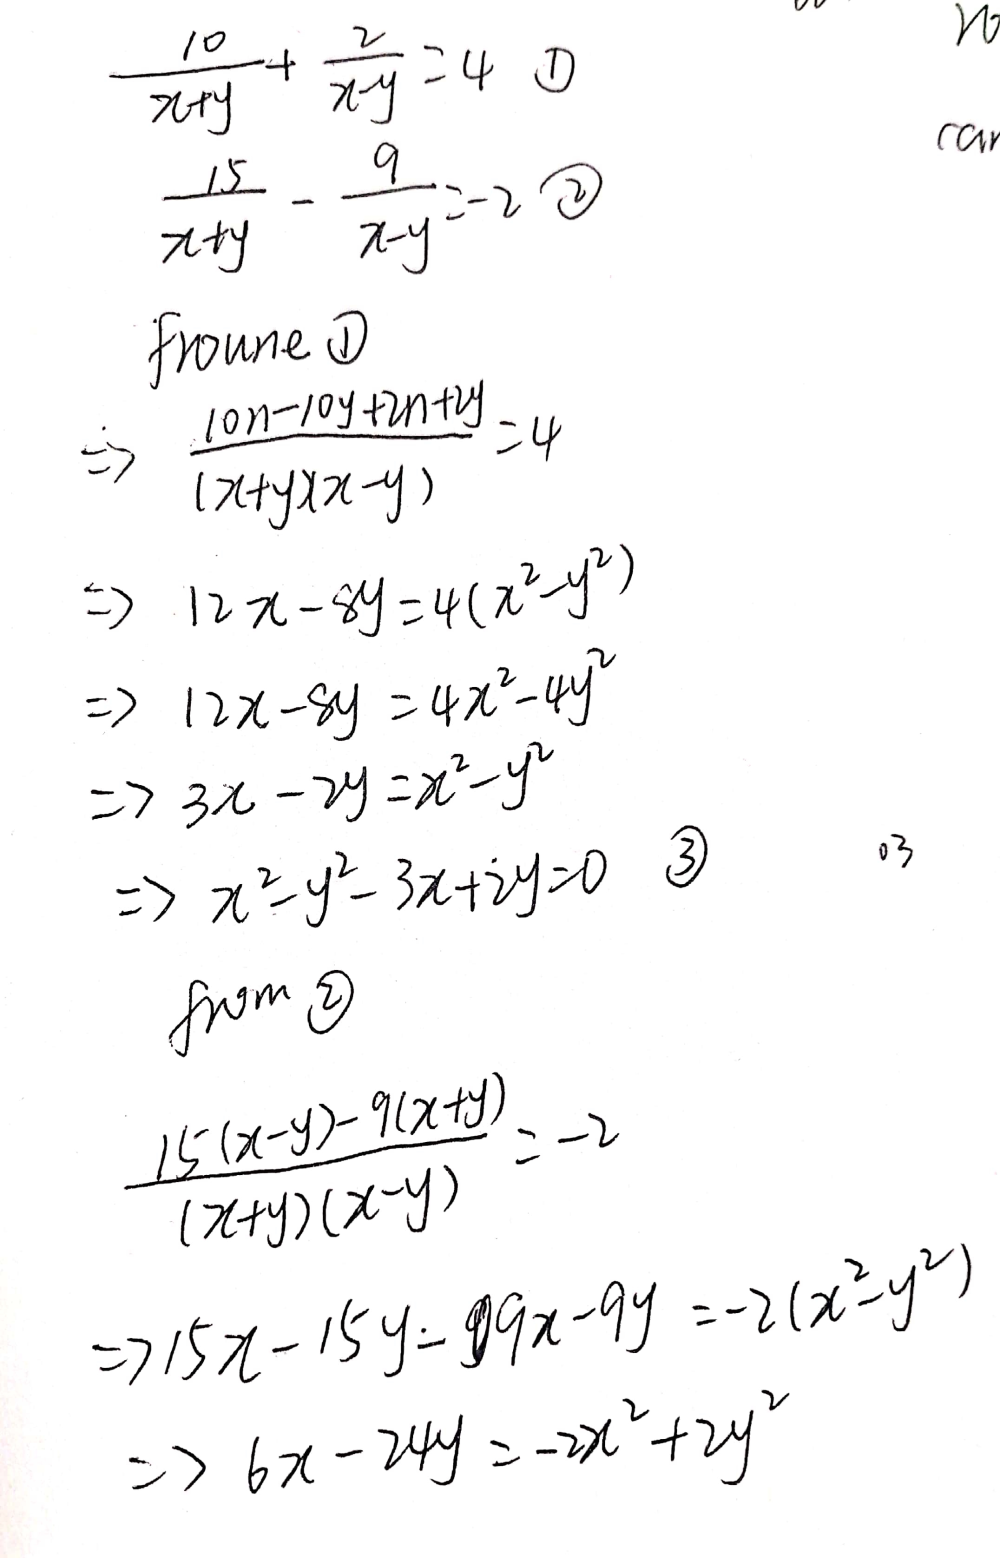 10/(x+y) + 2/(x-y) = 4 ①
15/(x+y) - 9/(x-y) = -2 ②
froume ①
=> (10n-10y+2n+2y)/((x+y)(x-y)) = 4
=> 12x-8y=4(x²-y²)
=> 12x-8y=4x²-4y²
=> 3x-2y=x²-y²
=> x²-y²-3x+2y=0 ③
03
from ②
(15(x-y)-9(x+y))/((x+y)(x-y)) = -2
=> 15x-15y-9x-9y=-2(x²-y²)
=> 6x-24y=-2x²+2y²